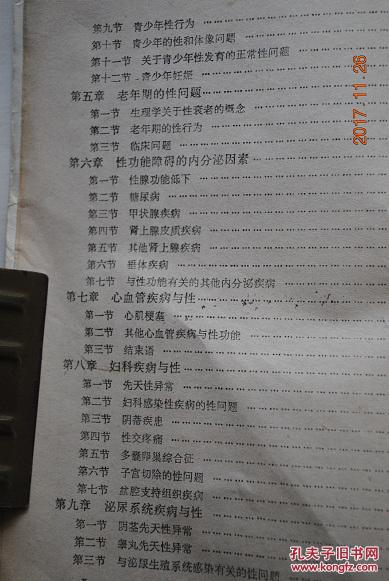 第九节 青少年性行为
第十节 青少年的性和体像问题
第十一节 关于青少年性发育的正常性问题
第十二节 青少年妊娠
第五章 老年期的性问题
第一节 生理学关于性衰老的概念
第二节 老年期的性行为
第三节 临床问题
第六章 性功能障碍的内分泌因素
第一节 性腺功能低下
第二节 糖尿病
第三节 甲状腺疾病
第四节 肾上腺皮质疾病
第五节 其他肾上腺疾病
第六节 垂体疾病
第七节 与性功能有关的其他内分泌疾病
第七章 心血管疾病与性
第一节 心肌梗塞
第二节 其他心血管疾病与性功能
第三节 结束语
第八章 妇科疾病与性
第一节 先天性异常
第二节 妇科感染性疾病的性问题
第三节 阴蒂疾患
第四节 性交疼痛
第五节 多囊卵巢综合征
第六节 子宫切除的性问题
第七节 盆腔支持组织疾病
第九章 泌尿系统疾病与性
第一节 阴茎先天性异常
第二节 睾丸先天性异常
第三节 与泌尿生殖系统感染有关的性问题
2017.11.26
孔夫子旧书网
www.kongfz.com